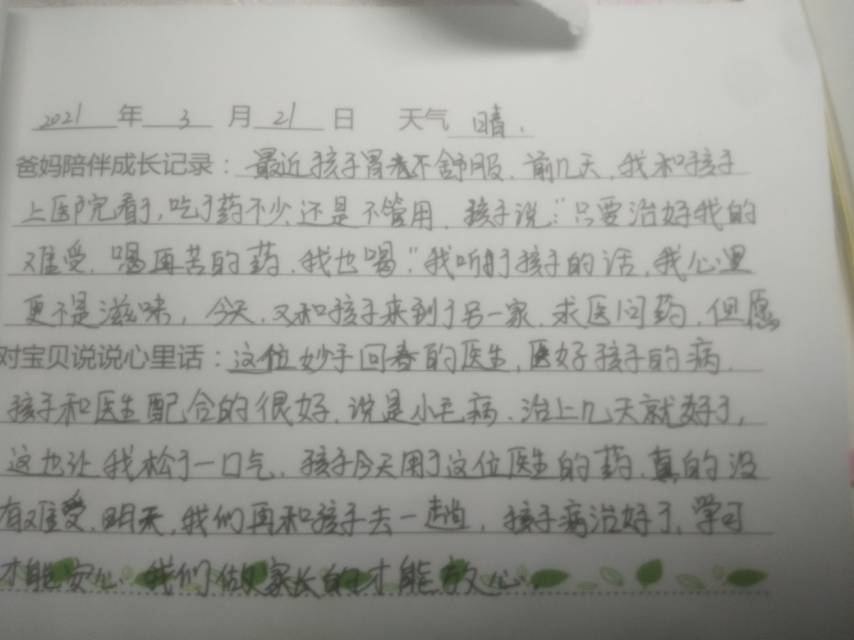 2021 年 3 月 21 日 天气 晴.
爸妈陪伴成长记录：最近孩子胃老不舒服．前几天，我和孩子
上医院看了，吃了药不少还是不管用．孩子说："只要治好我的
难受．喝再苦的药．我也喝．"我听了孩子的话，我心里
更不是滋味，今天，又和孩子来到了另一家．求医问药，但愿
对宝贝说说心里话：这位妙手回春的医生，医好孩子的病．
孩子和医生配合的很好．说是小毛病．治上几天就好了，
这也让我松了一口气．孩子今天用了这位医生的药．真的没
有难受．明天，我们再和孩子去一趟，孩子病治好了，学习
才能安心．我们做家长的才能放心．